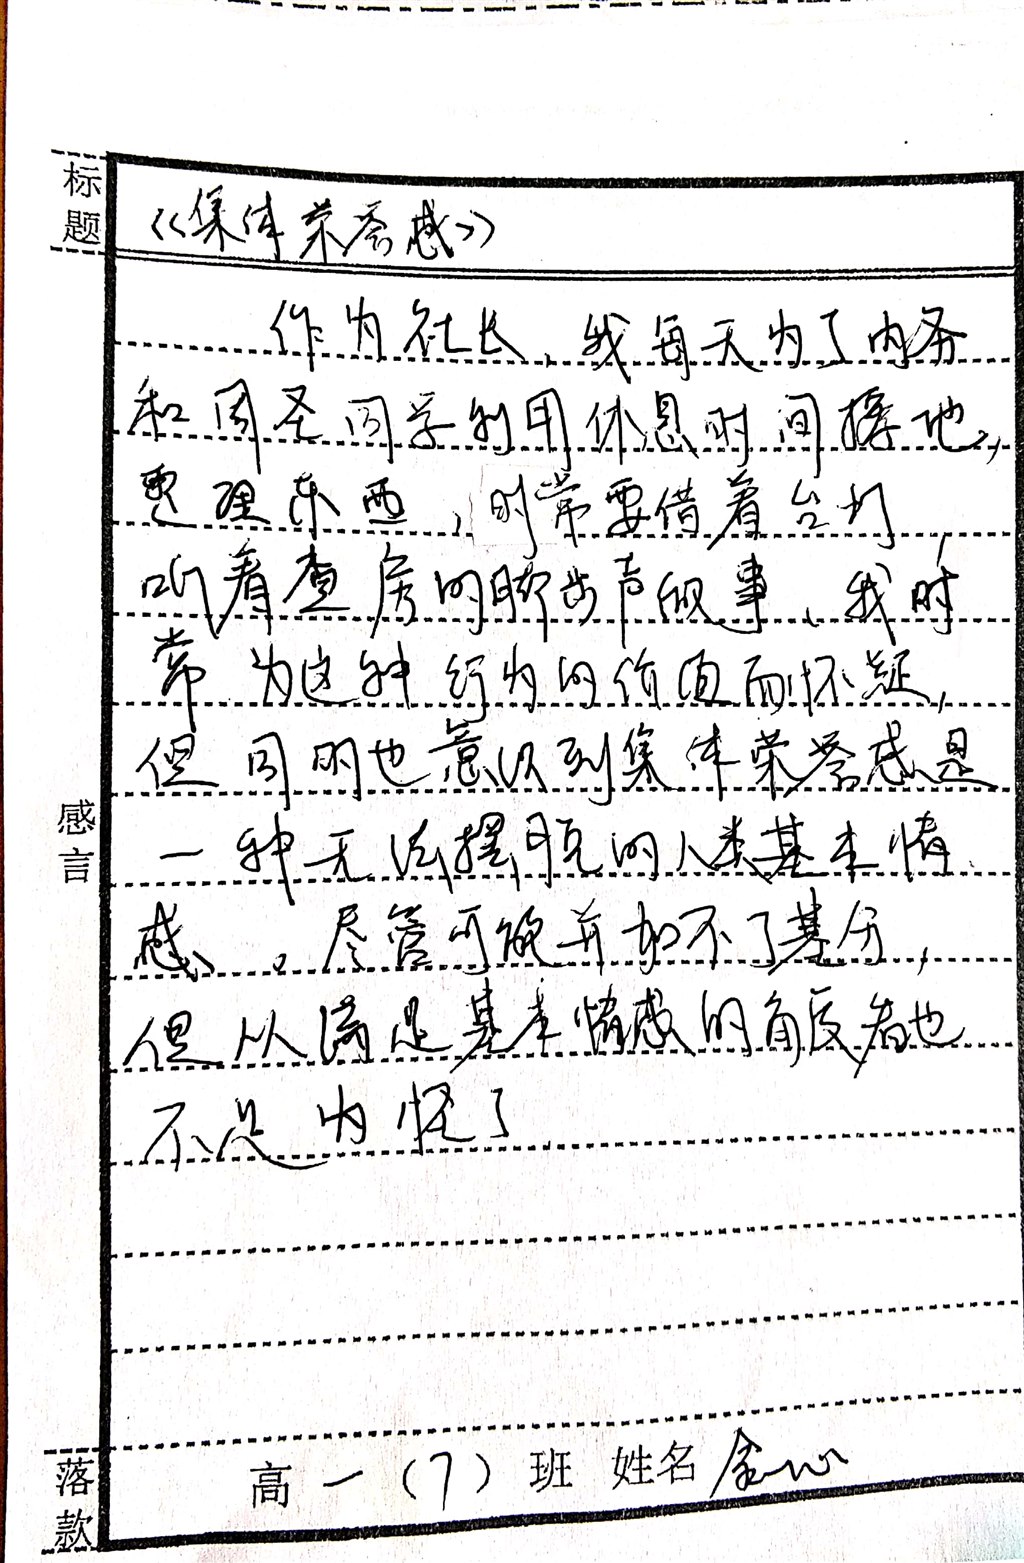 标题
《集体荣誉感》
作为社长，我每天为了内务
和周圣同学利用休息时间擦地，
整理东西，时常要借着台灯，
听着查房的脚步声做事、我时
常为这种行为的价值而怀疑，
但同时也意识到集体荣誉感是
一种无法摆脱的人类基本情
感。尽管可能并加不了基分，
但从满足基本情感的角度看也
不足为怪了
感言
落款
高一（7）班 姓名